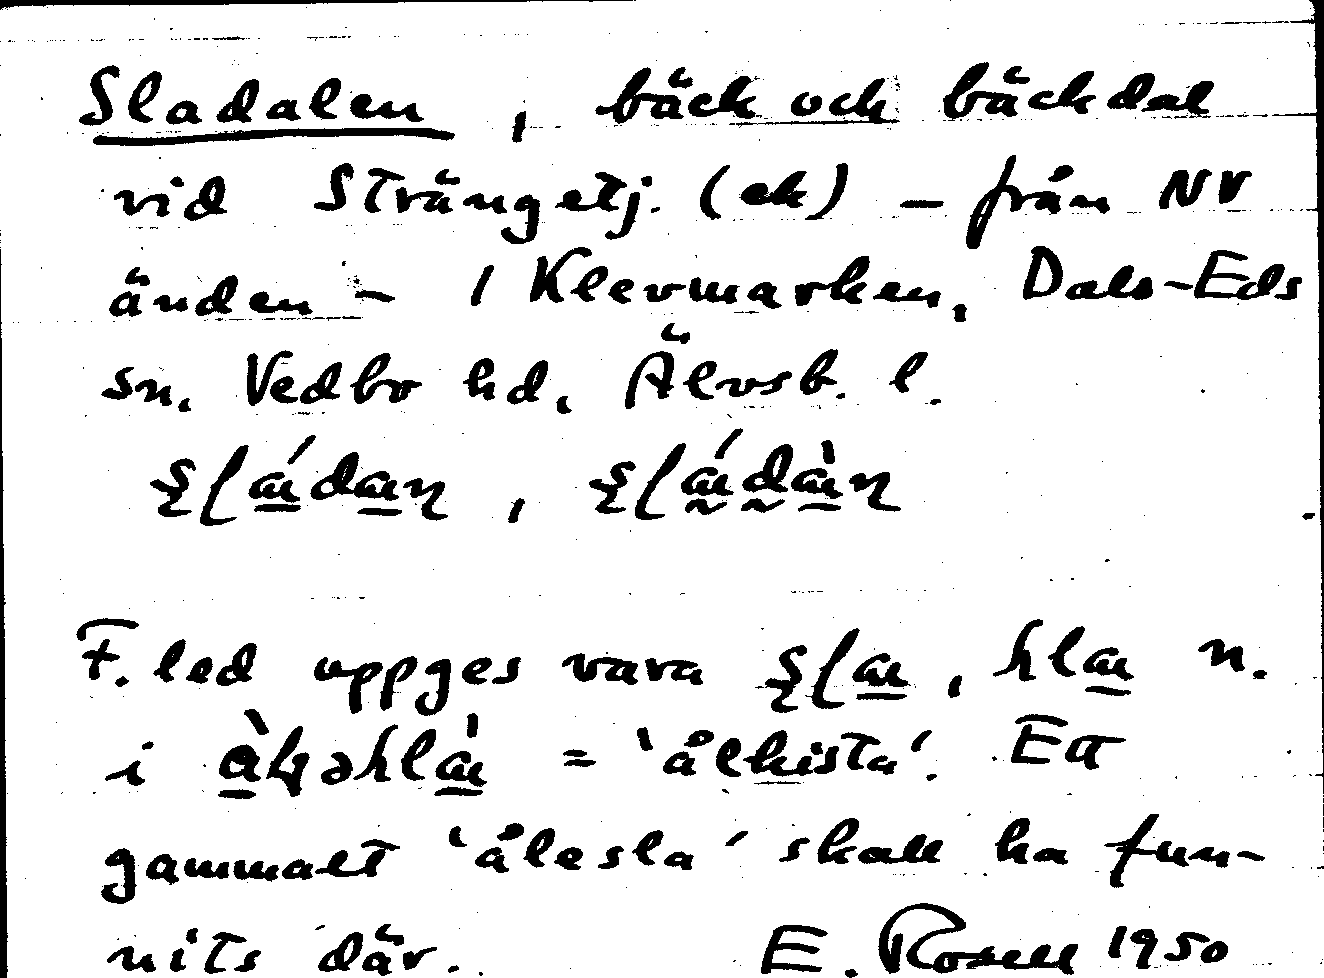 Sladalen, bäck och bäckdal
vid Strängetj. (ek) – från NV
änden – i Klevmarken, Dals-Eds
sn. Vedbo hd, Älvsb. l.
F. led uppges vara n.
i = 'ålkista'. Ett
gammalt 'ålesla' skall ha fun-
nits där. E. Rosell 1950